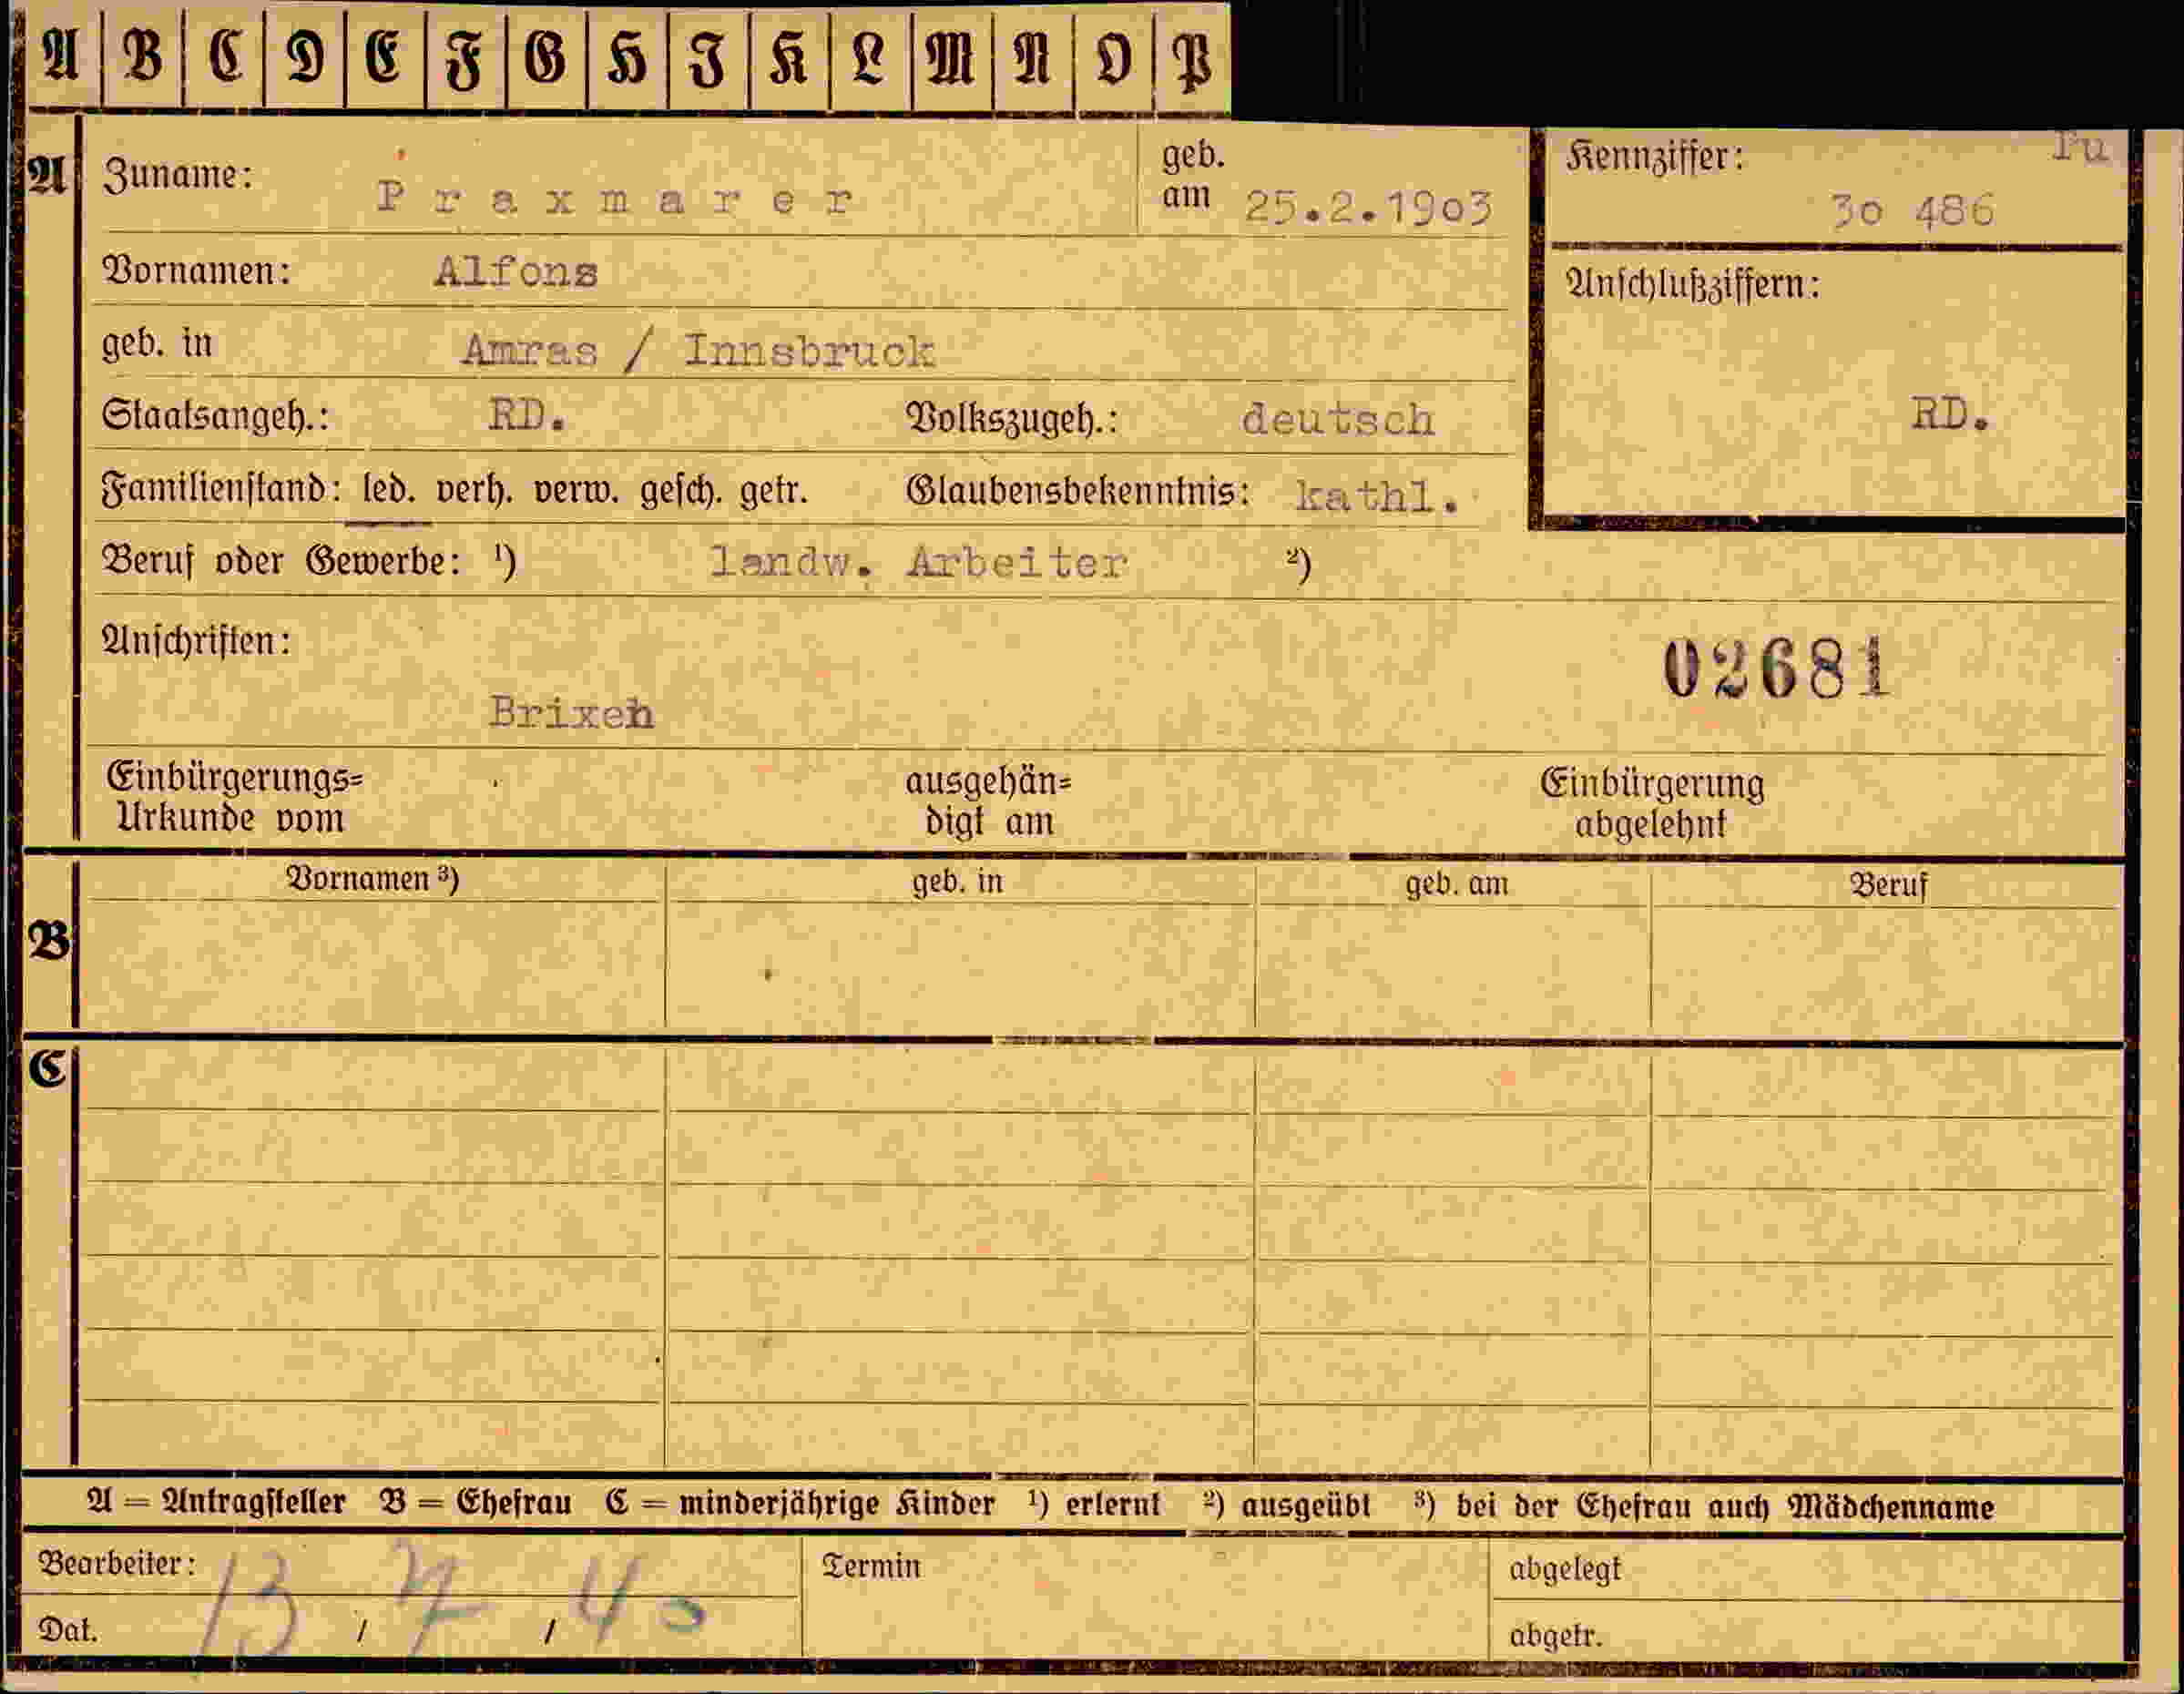 A B C D E F G H I K L M N O P
A Zuname: Praxmarer geb. am 25.2.1903
Kennziffer: 30 486
Vornamen: Alfons
Anschlußziffern: RD.
geb. in Amras / Innsbruck
Staatsangeh.: RD. Volkszugeh.: deutsch
Familienstand: led. verh. verw. gesch. getr. Glaubensbekenntnis: kathl.
Beruf oder Gewerbe: ¹) landw. Arbeiter ²)
Anschriften:
02681
Brixen
Einbürgerungs= ausgehän= Einbürgerung
Urkunde vom digt am abgelehnt
B Vornamen ³) geb. in geb. am Beruf
C
A = Antragsteller B = Ehefrau C = minderjährige Kinder ¹) erlernt ²) ausgeübt ³) bei der Ehefrau auch Mädchenname
Bearbeiter: Termin abgelegt
Dat. 13 / 7 / 40 abgetr.